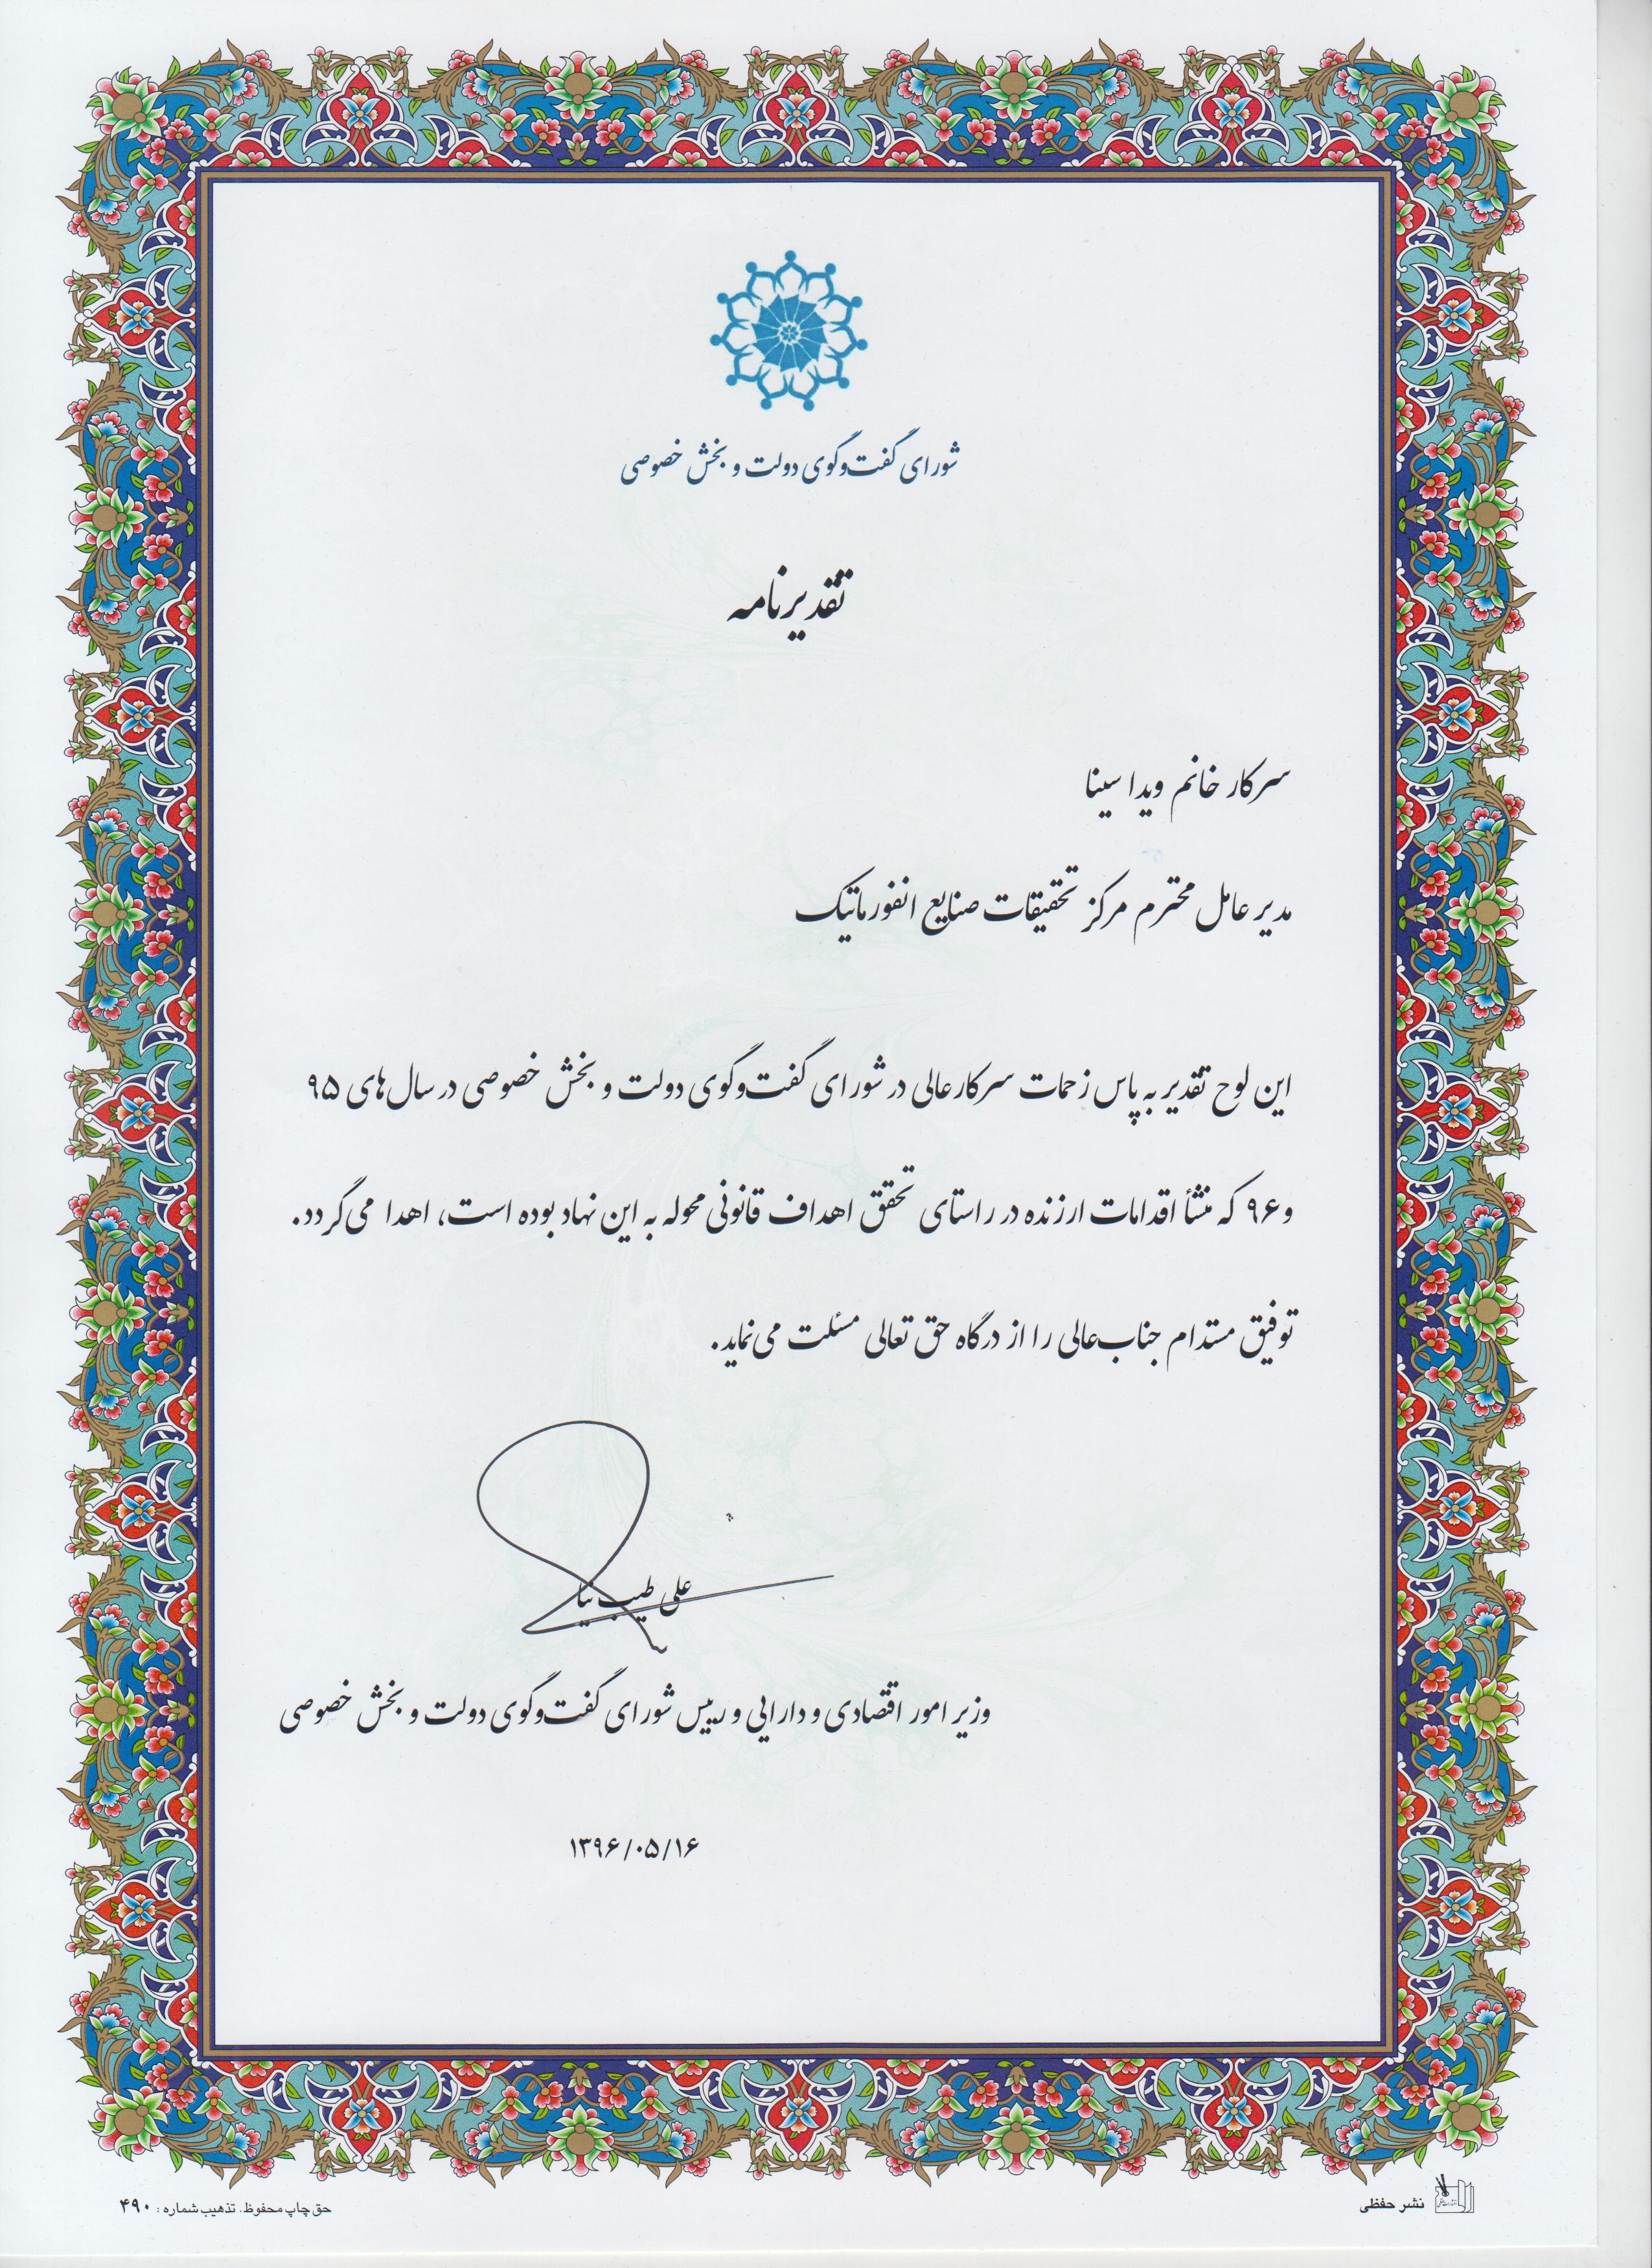 شورای گفت‌وگوی دولت و بخش خصوصی
تقدیرنامه
سرکار خانم ویدا سینا
مدیر عامل محترم مرکز تحقیقات صنایع انفورماتیک
این لوح تقدیر به پاس زحمات سرکار عالی در شورای گفت‌وگوی دولت و بخش خصوصی در سال‌های ۹۵
و ۹۶ که منشأ اقدامات ارزنده در راستای تحقق اهداف قانونی محوله به این نهاد بوده است، اهدا می‌گردد.
توفیق مستدام جناب‌عالی را از درگاه حق تعالی مسئلت می‌نماید.
علی طیب نیا
وزیر امور اقتصادی و دارایی و رییس شورای گفت‌وگوی دولت و بخش خصوصی
۱۳۹۶/۰۵/۱۶
نشر حفظی
حق چاپ محفوظ. تذهیب شماره : ۴۹۰